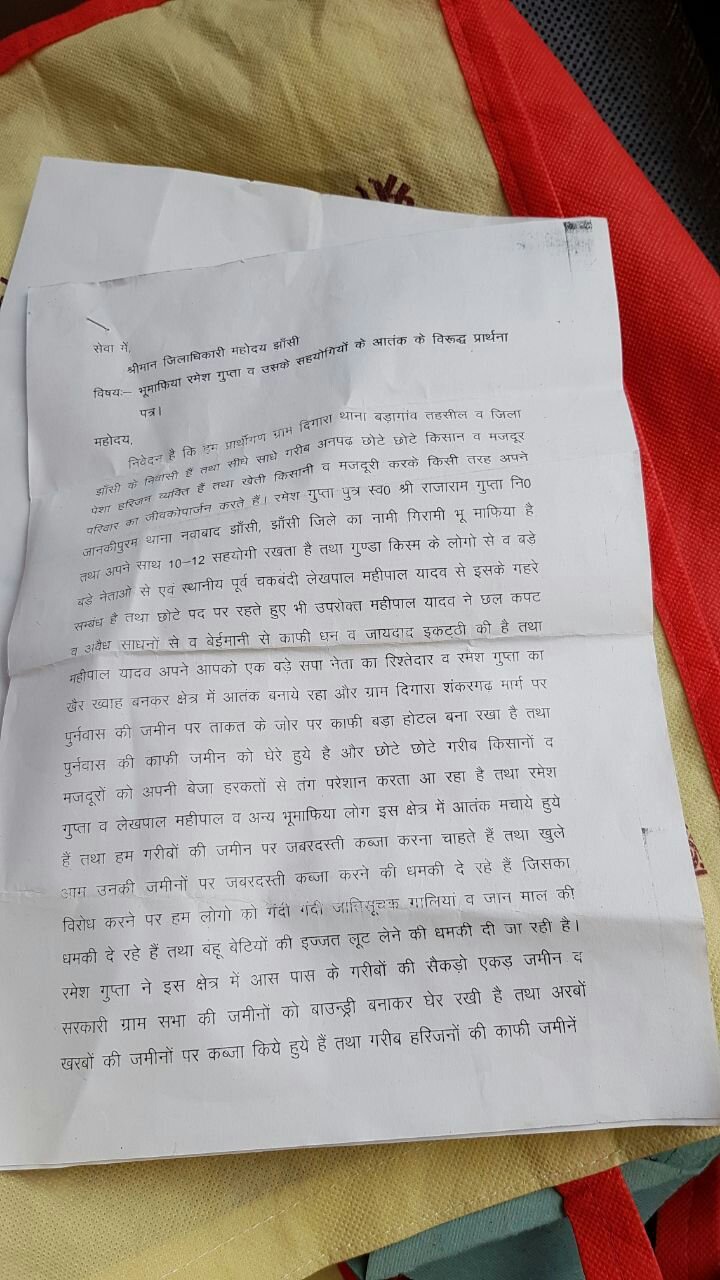 सेवा में,
श्रीमान जिलाधिकारी महोदय झाँसी
विषयः– भूमाफिया रमेश गुप्ता व उसके सहयोगियों के आतंक के विरूद्ध प्रार्थना
पत्र।
महोदय,
निवेदन है कि हम प्रार्थीगण ग्राम दिगारा थाना बड़ागांव तहसील व जिला
झाँसी के निवासी हैं तथा सीधे साधे गरीब अनपढ़ छोटे छोटे किसान व मजदूर
पेशा हरिजन व्यक्ति हैं तथा खेती किसानी व मजदूरी करके किसी तरह अपने
परिवार का जीवकोपार्जन करते हैं। रमेश गुप्ता पुत्र स्व0 श्री राजाराम गुप्ता नि0
जानकीपुरम थाना नवाबाद झाँसी, झाँसी जिले का नामी गिरामी भू माफिया है
तथा अपने साथ 10–12 सहयोगी रखता है तथा गुण्डा किस्म के लोगो से व बड़े
बड़े नेताओ से एवं स्थानीय पूर्व चकबंदी लेखपाल महीपाल यादव से इसके गहरे
सम्बंध है तथा छोटे पद पर रहते हुए भी उपरोक्त महीपाल यादव ने छल कपट
व अवैध साधनों से व बेईमानी से काफी धन व जायदाद इकट्ठी की है तथा
महीपाल यादव अपने आपको एक बड़े सपा नेता का रिश्तेदार व रमेश गुप्ता का
खैर ख्वाह बनकर क्षेत्र में आतंक बनाये रहा और ग्राम दिगारा शंकरगढ़ मार्ग पर
पुर्नवास की जमीन पर ताकत के जोर पर काफी बडा होटल बना रखा है तथा
पुर्नवास की काफी जमीन को घेरे हुये है और छोटे छोटे गरीब किसानों व
मजदूरों को अपनी बेजा हरकतों से तंग परेशान करता आ रहा है तथा रमेश
गुप्ता व लेखपाल महीपाल व अन्य भूमाफिया लोग इस क्षेत्र में आतंक मचाये हुये
हैं तथा हम गरीबों की जमीन पर जबरदस्ती कब्जा करना चाहते हैं तथा खुले
आम उनकी जमीनों पर जबरदस्ती कब्जा करने की धमकी दे रहे हैं जिसका
विरोध करने पर हम लोगो को गंदी गंदी जातिसूचक गालियां व जान माल की
धमकी दे रहे हैं तथा बंहू बेटियों की इज्जत लूट लेने की धमकी दी जा रही है।
रमेश गुप्ता ने इस क्षेत्र में आस पास के गरीबों की सैकड़ो एकड़ जमीन व
सरकारी ग्राम सभा की जमीनों को बाउन्ड्री बनाकर घेर रखी है तथा अरबों
खरबों की जमीनों पर कब्जा किये हुये हैं तथा गरीब हरिजनों की काफी जमीनें